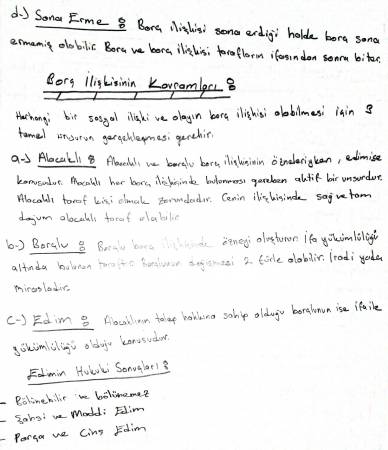 d-) Sona Erme : Borç ilişkisi sona erdiği halde borç sona
ermemiş olabilir. Borç ve borç ilişkisi tarafların ifasından sonra biter.
Borç İlişkisinin Kavramları :
Herhangi bir sosyal ilişki ve olayın borç ilişkisi olabilmesi için 3
temel unsurun gerçekleşmesi gerekir.
a-) Alacaklı : Alacaklı ve borçlu borç ilişkisinin özneleriyken, edimise
konusudur. Alacaklı her borç ilişkisinde bulunması gereken aktif bir unsurdur.
Alacaklı taraf kişi olmak zorundadır. Cenin ilişkisinde sağ ve tam
doğum alacaklı taraf olabilir
b-) Borçlu : Borçlu borç ilişkisinde özneyi oluşturan ifa yükümlülüğü
altında bulunan taraftır. Borçlunun değişmesi 2 türle olabilir. İradi yada
mirasladır.
C-) Edim : Alacaklının talep hakkına sahip olduğu borçlunun ise ifa ile
yükümlülüğü olduğu konusudur.
Edimin Hukuki Sonuçları :
- Bölünebilir ve bölünemez
- Şahsi ve Maddi Edim
- Parça ve Cins Edim